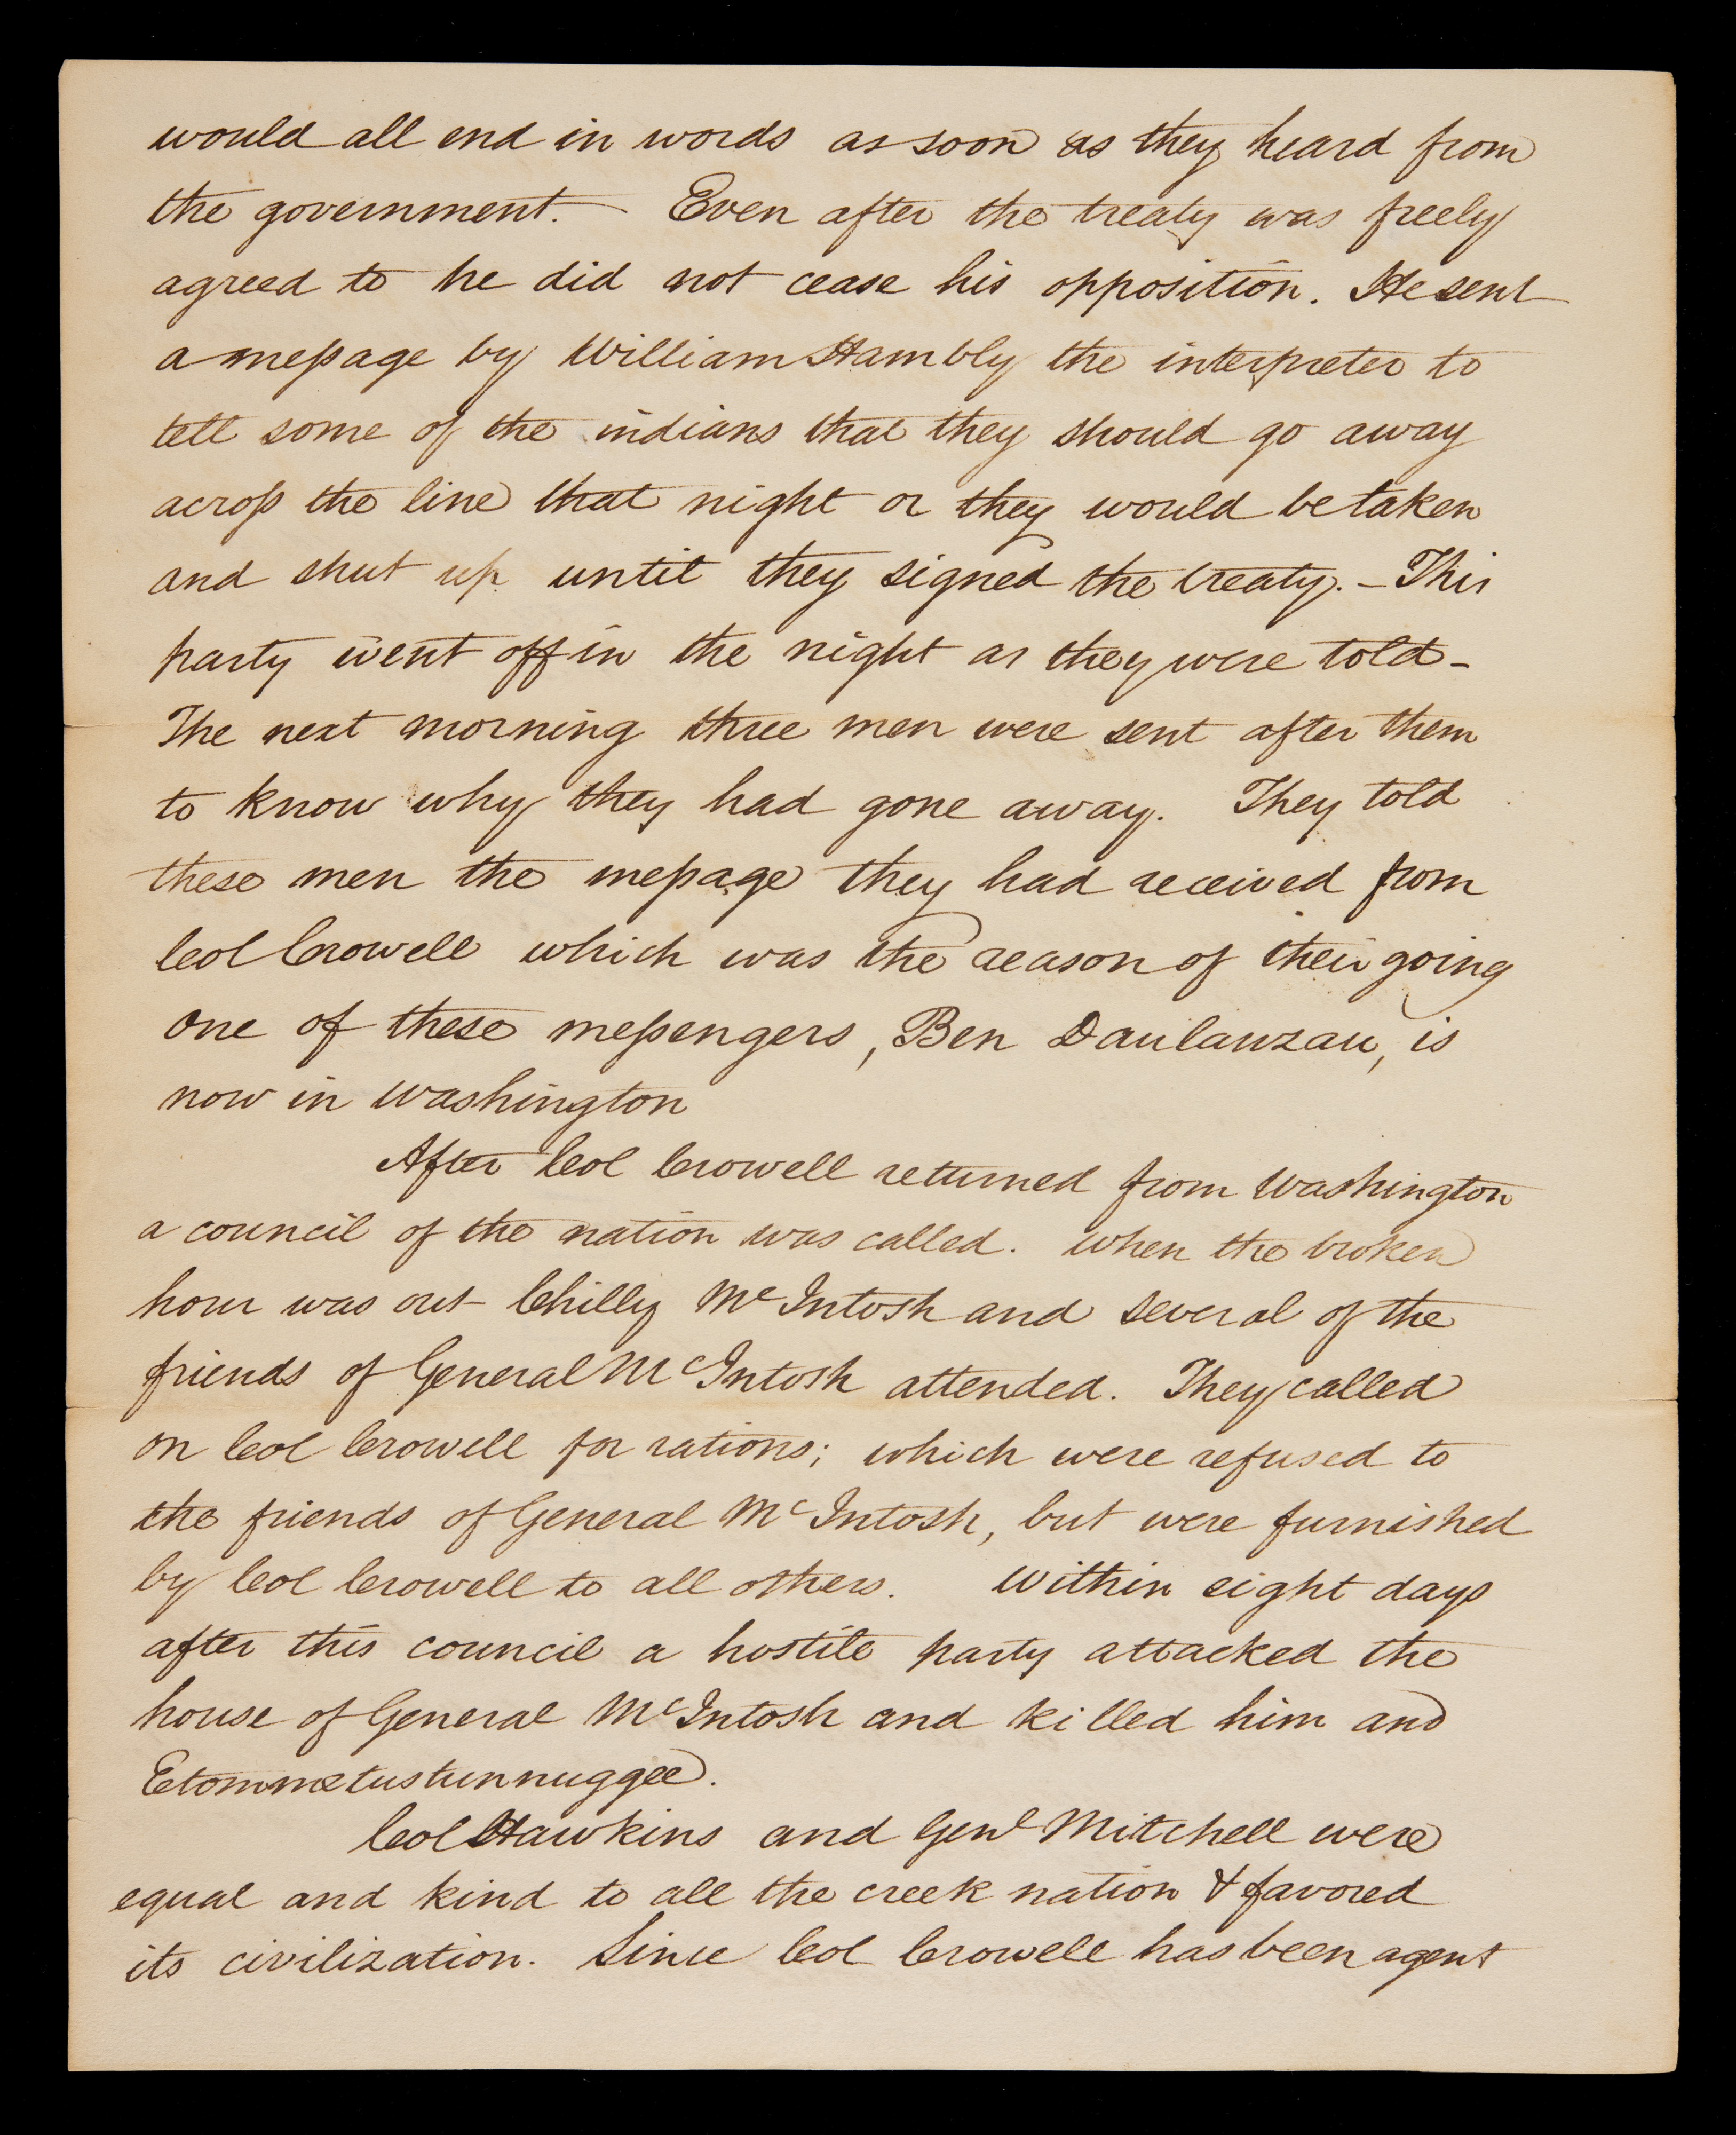 would all end in words as soon as they heard from
the government. — Even after the treaty was freely
agreed to he did not cease his opposition. He sent
a message by William Hambly the interpreter to
tell some of the indians that they should go away
across the line that night or they would be taken
and shut up until they signed the treaty. – This
party went off in the night as they were told –
The next morning three men were sent after them
to know why they had gone away. They told
these men the message they had received from
Col Crowell which was the reason of their going
one of these messengers, Ben Daulauzau, is
now in Washington
After Col Crowell returned from Washington
a council of the nation was called. When the broken
hour was out Chilly McIntosh and several of the
friends of General McIntosh attended. They called
on Col Crowell for rations; which were refused to
the friends of General McIntosh, but were furnished
by Col Crowell to all others. Within eight days
after this council a hostile party attacked the
house of General McIntosh and killed him and
Etommetustunnuggee.
Col Hawkins and Genl Mitchell were
equal and kind to all the creek nation & favored
its civilization. Since Col Crowell has been agent